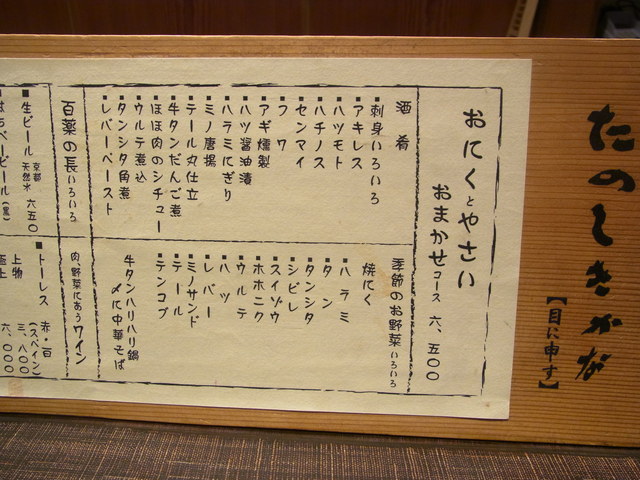 たのしきかな
【目に申す】
おにくとやさい
おまかせコース 六、五〇〇
酒肴
▪刺身いろいろ
▪アキレス
▪ハツモト
▪ハチノス
▪センマイ
▪フワ
▪アギ燻製
▪ハツ醤油漬
▪ハラミにぎり
▪ミノ唐揚
▪テール丸仕立
▪牛タンだんご煮
▪ほほ肉のシチュー
▪ウルテ煮込
▪タンシタ角煮
▪レバーペースト
季節のお野菜いろいろ
焼にく
▪ハラミ
▪タン
▪タンシタ
▪シビレ
▪スイゾウ
▪ホホニク
▪ウルテ
▪ハツ
▪レバー
▪ミノサンド
▪テール
▪テンコブ
牛タンハリハリ鍋
〆に中華そば
百薬の長いろいろ
▪生ビール 京都天然水 六五〇
はちべービール(黒)
肉、野菜にあうワイン
▪トーレス 赤・白
(スペイン) 三、八〇〇
上物 六、〇〇〇
極上